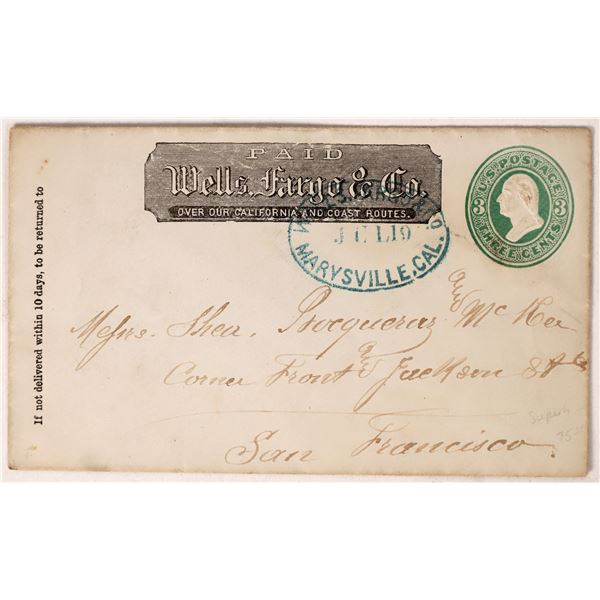 If not delivered within 10 days, to be returned to
PAID
Wells, Fargo & Co.
OVER OUR CALIFORNIA AND COAST ROUTES.
WELLS, FARGO & CO.
JUL 19
MARYSVILLE, CAL.
U.S. POSTAGE
3 3
THREE CENTS
Messrs. Shea, Bocqueraz and McKee
Corner Front and Jackson Sts
San Francisco
Superb